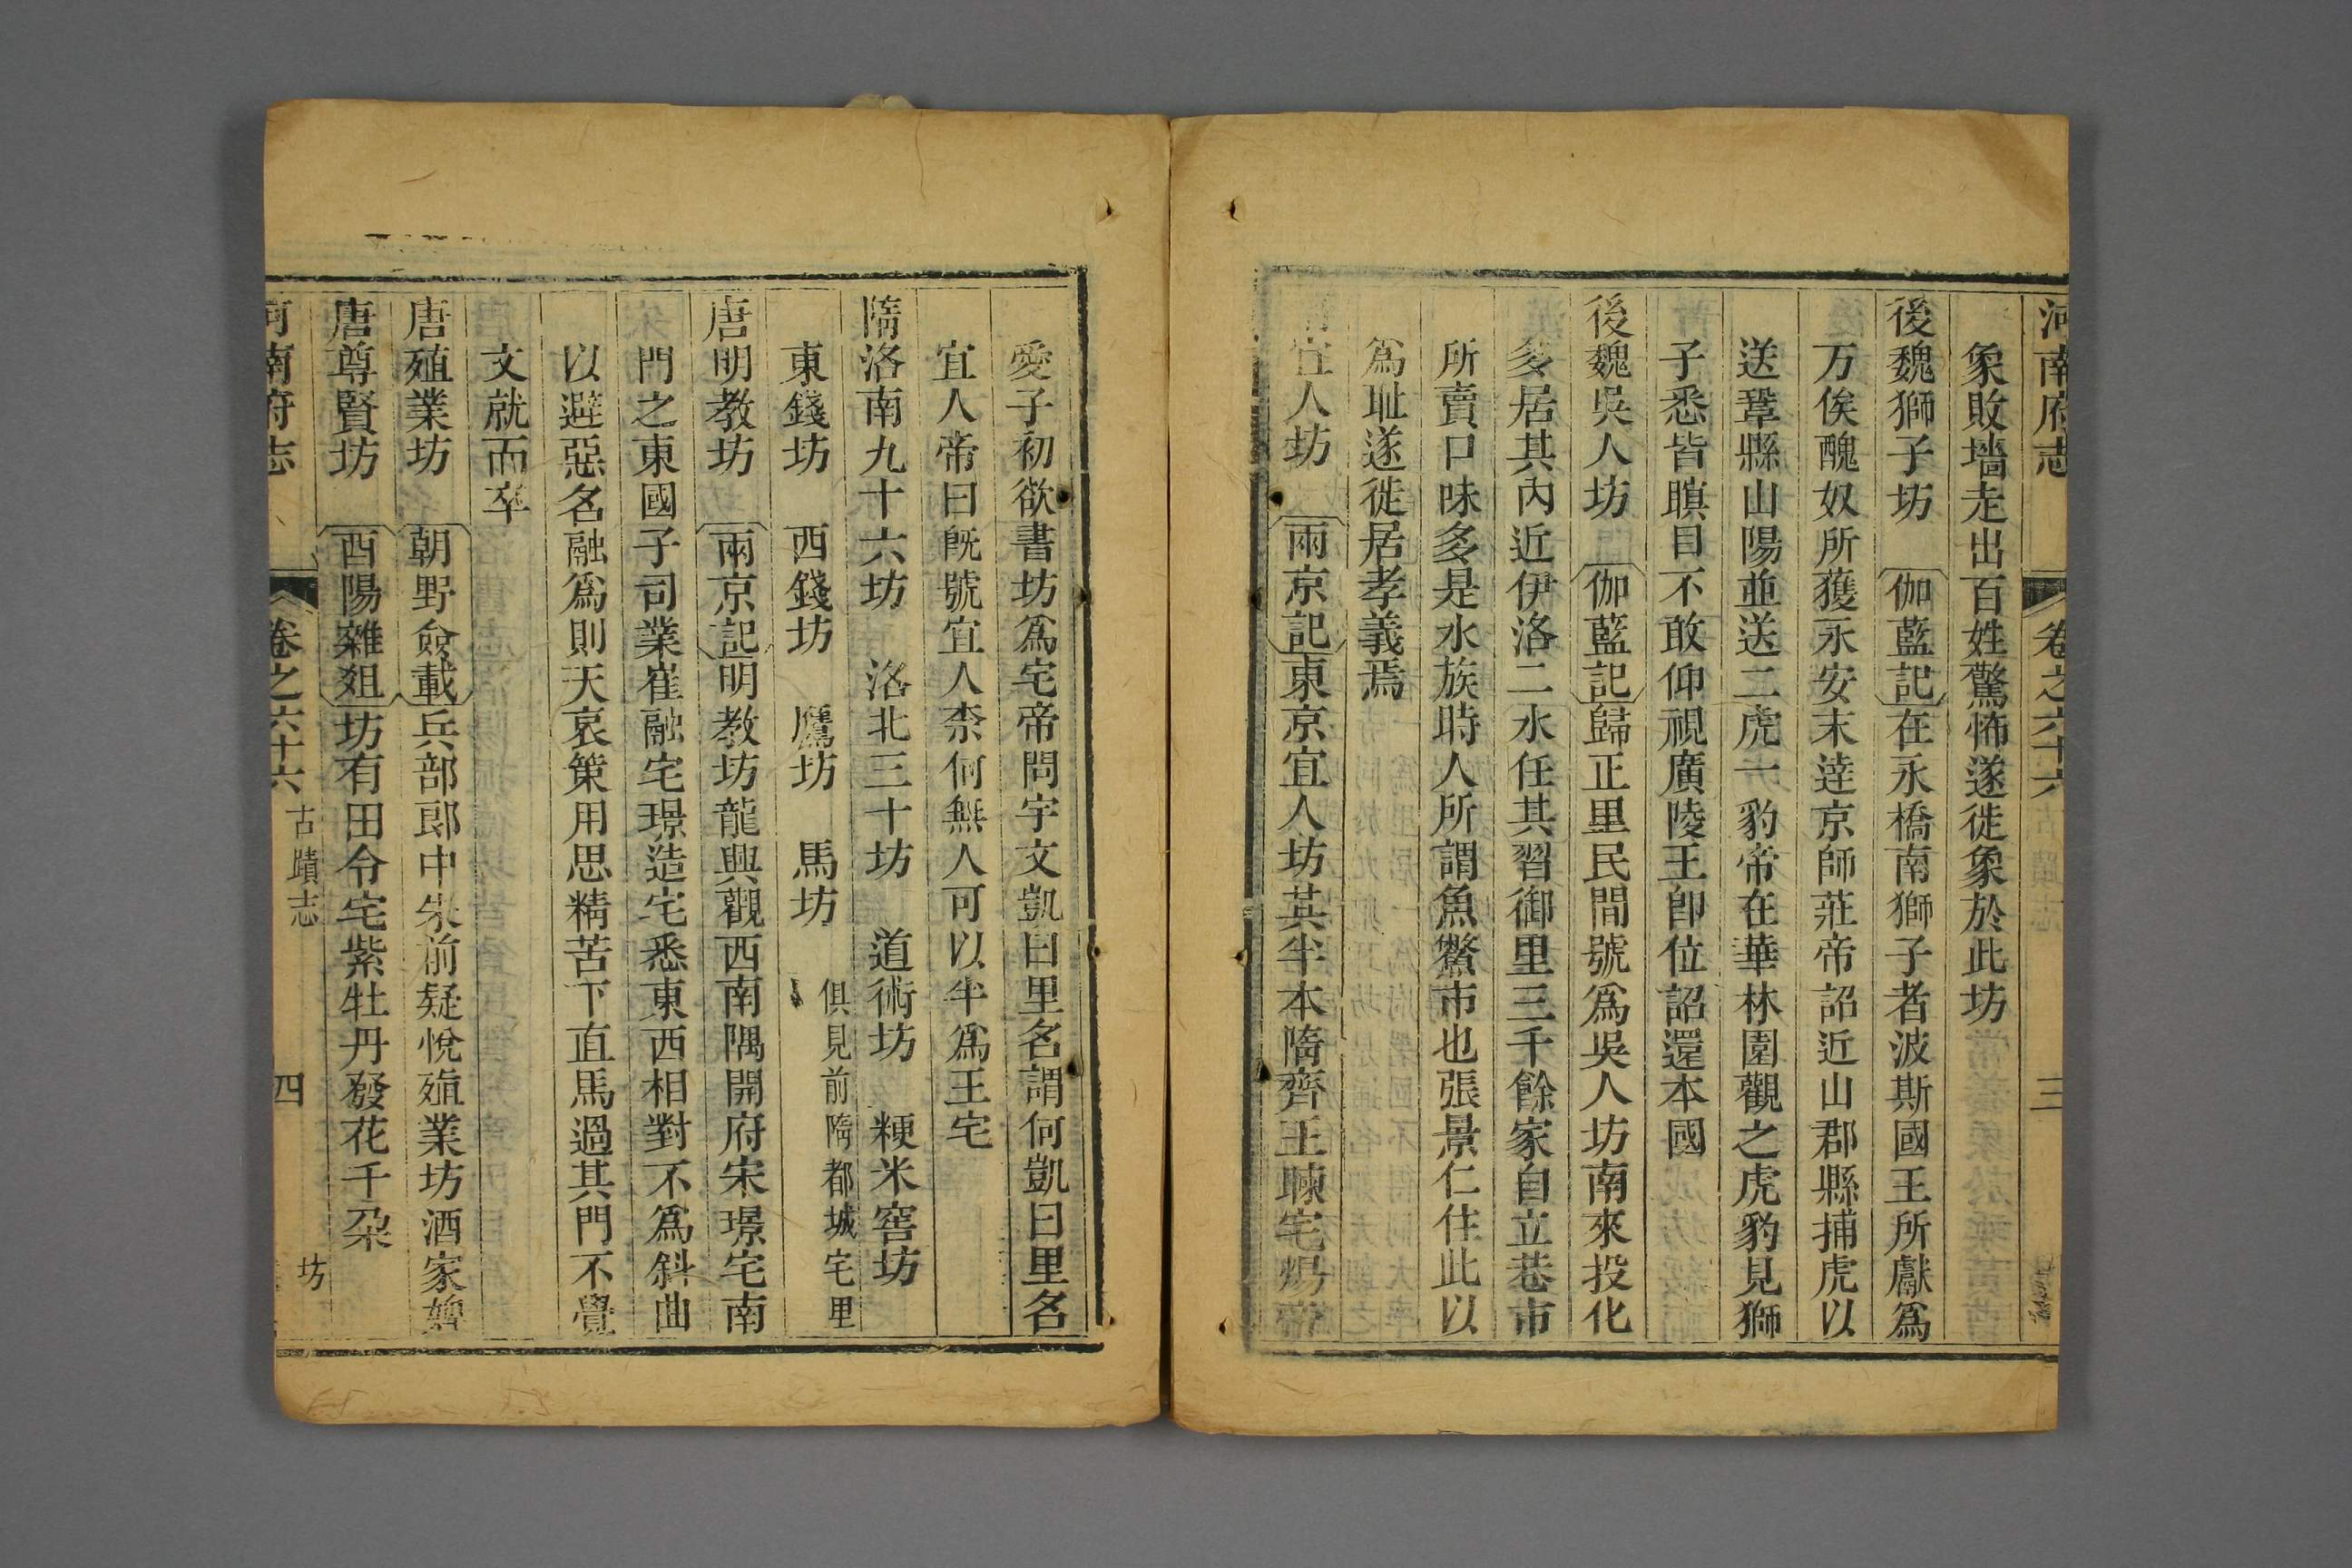 河南府志 卷之六十六 三
象敗墻走出百姓驚怖遂徙象於此坊
後魏獅子坊 伽藍記在永橋南獅子者波斯國王所獻爲
万俟醜奴所獲永安末逹京師莊帝詔近山郡縣捕虎以
送鞏縣山陽並送二虎一豹帝在華林園觀之虎豹見獅
子悉皆瞑目不敢仰視廣陵王卽位詔還本國
後魏吳人坊 伽藍記歸正里民間號爲吳人坊南來投化
多居其內近伊洛二水任其習御里三千餘家自立巷市
所賣口味多是水族時人所謂魚鱉市也張景仁住此以
爲耻遂徙居孝義焉
隋宜人坊 兩京記東京宜人坊其半本隋齊王暕宅煬帝
愛子初欲書坊爲宅帝問宇文凱曰里名謂何凱曰里名
宜人帝曰旣號宜人柰何無人可以半爲王宅
隋洛南九十六坊 洛北三十坊 道術坊 粳米窖坊
東錢坊 西錢坊 鷹坊 馬坊 俱見前隋都城宅里
唐明教坊 兩京記明教坊龍興觀西南隅開府宋璟宅南
門之東國子司業崔融宅璟造宅悉東西相對不爲斜曲
以避惡名融爲則天哀策用思精苦下直馬過其門不覺
文就而卒
唐殖業坊 朝野僉載兵部郎中朱前疑悅殖業坊酒家婢
唐尊賢坊 酉陽雜俎坊有田令宅紫牡丹發花千朶
河南府志 卷之六十六 古蹟志 坊 四